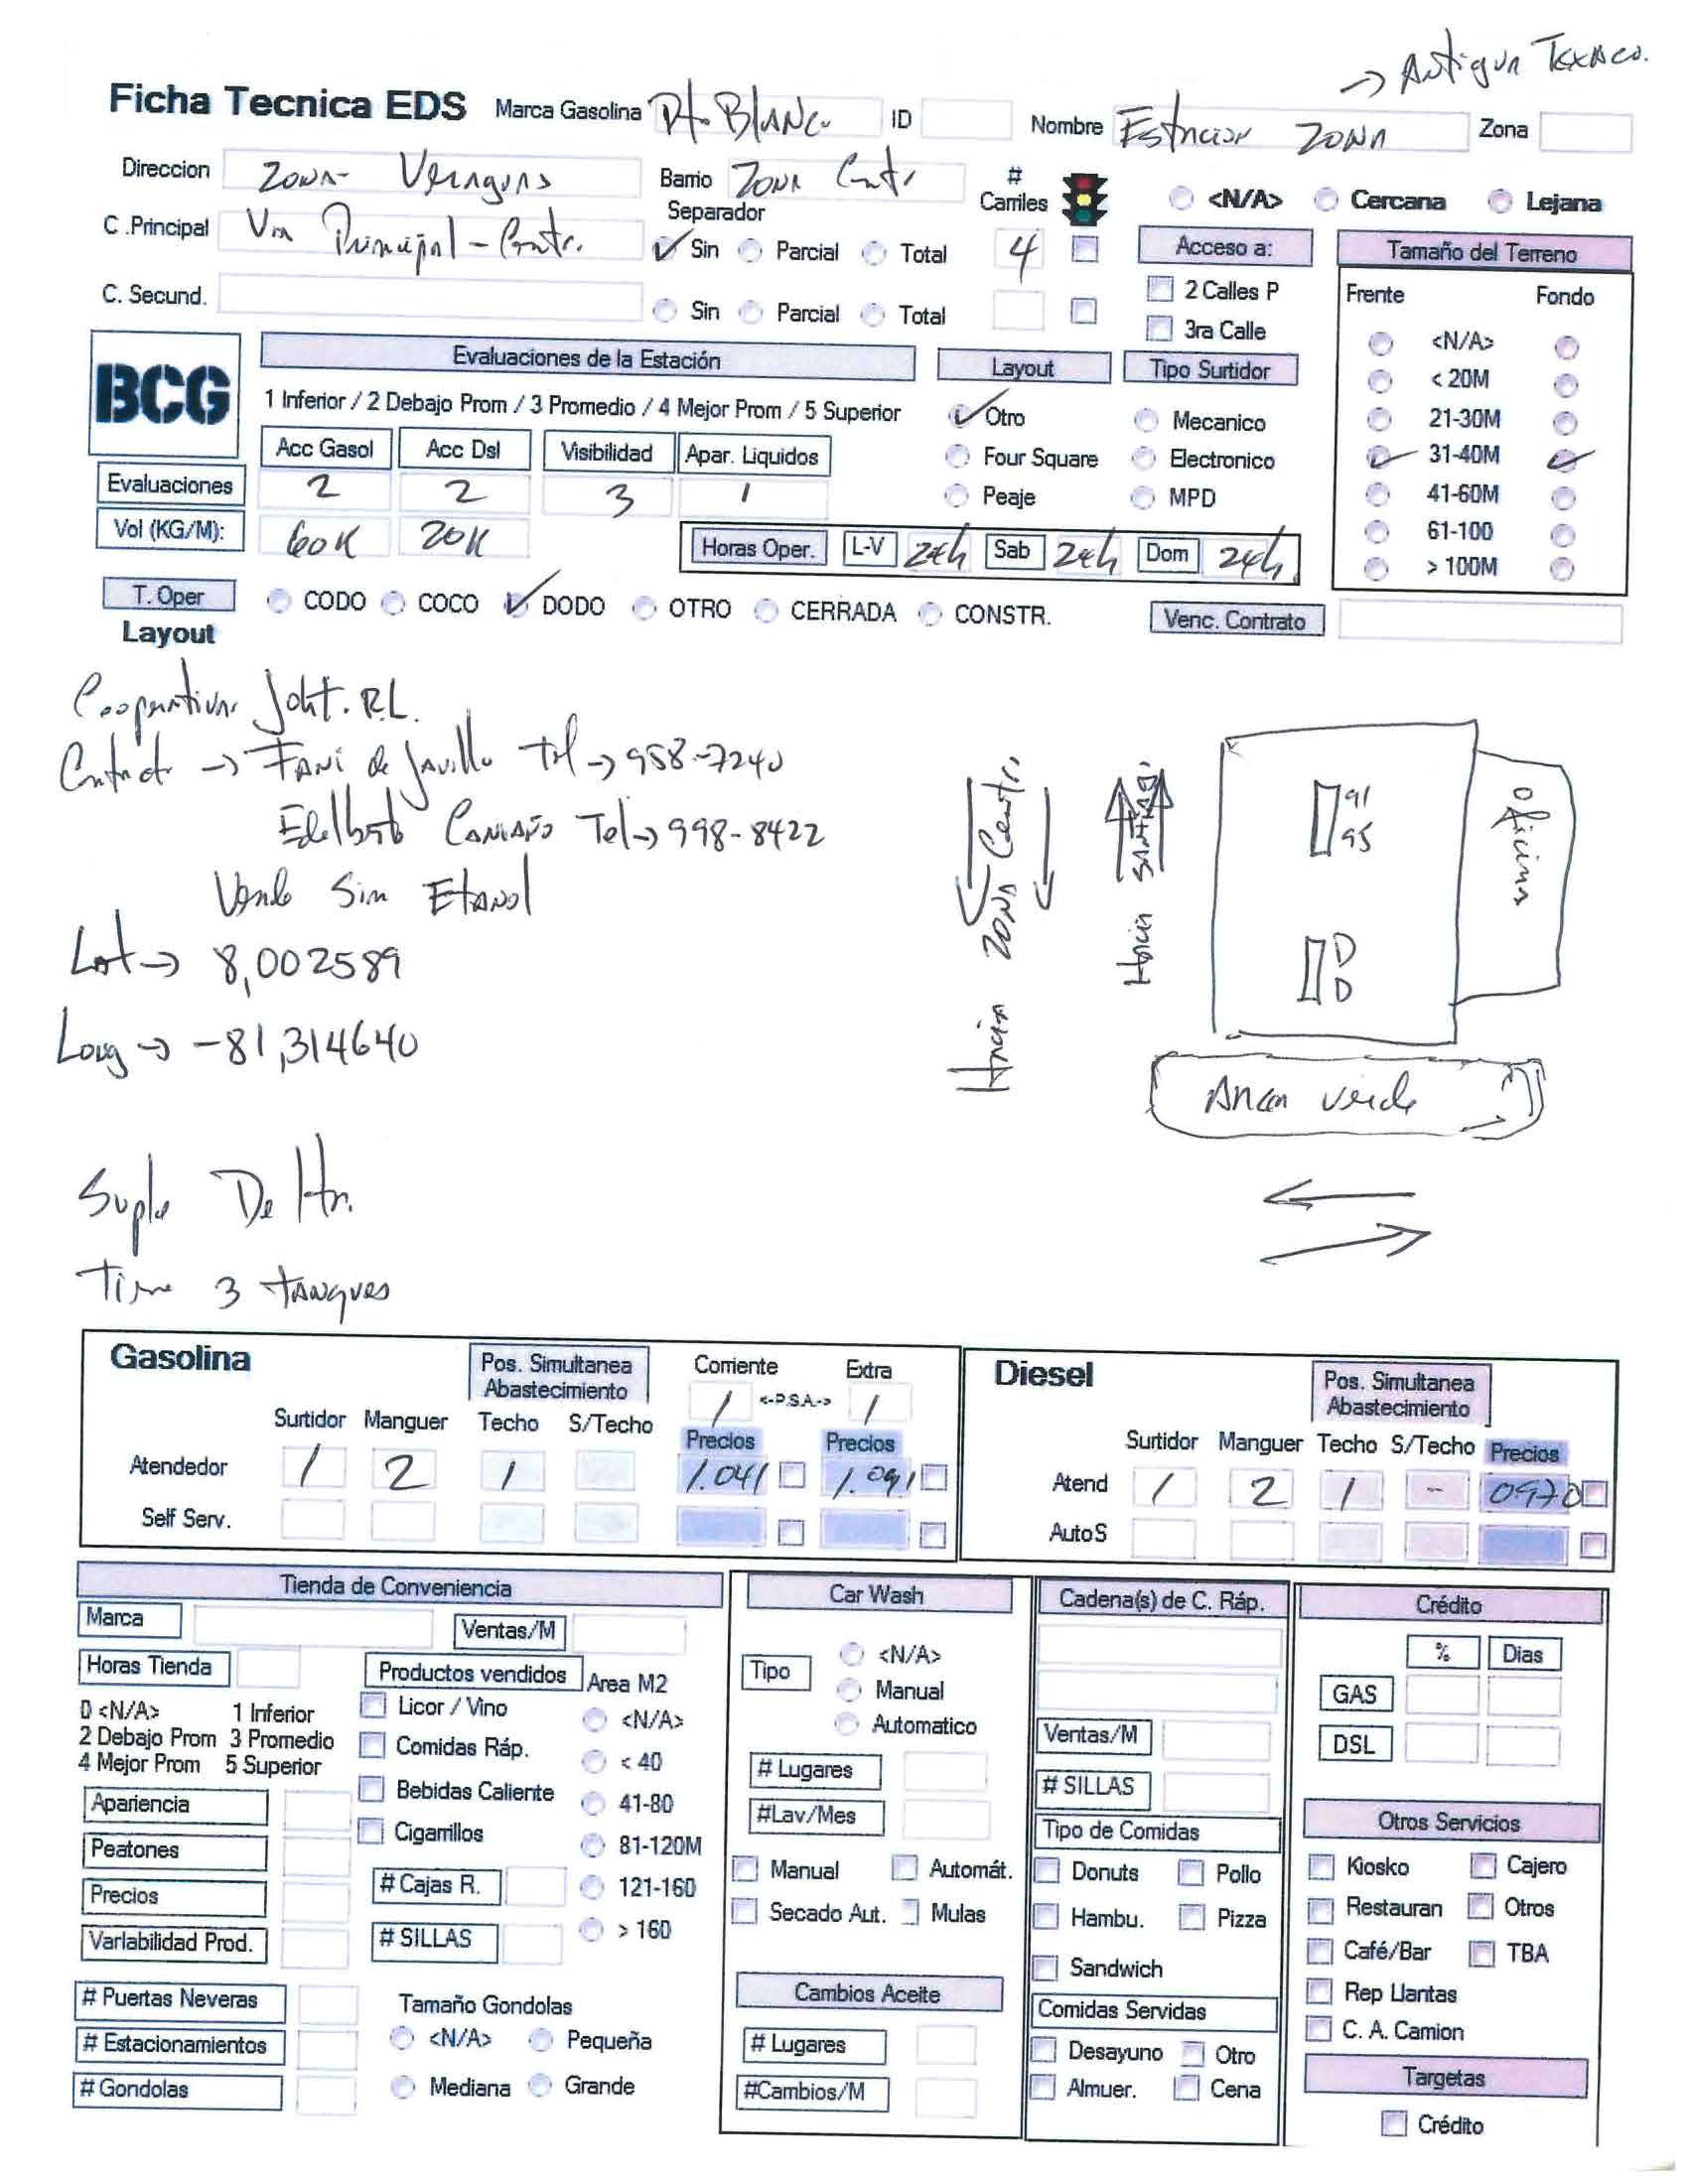 → Antigua Texaco.
Ficha Tecnica EDS Marca Gasolina Pt. Blanc. ID Nombre Estacion Zona Zona
Direccion Zona- Veraguas Barrio Zona Centr # Carriles <N/A> Cercana Lejana
C .Principal Via Principal - Centr. Separador Sin Parcial Total 4 Acceso a: Tamaño del Terreno
C. Secund. Sin Parcial Total 2 Calles P Frente Fondo
3ra Calle
BCG Evaluaciones de la Estación Layout Tipo Surtidor <N/A>
< 20M
1 Inferior / 2 Debajo Prom / 3 Promedio / 4 Mejor Prom / 5 Superior Otro Mecanico 21-30M
Acc Gasol Acc Dsl Visibilidad Apar. Liquidos Four Square Electronico 31-40M
Evaluaciones 2 2 3 1 Peaje MPD 41-60M
Vol (KG/M): 60K 20K Horas Oper. L-V 24h Sab 24h Dom 24h 61-100
> 100M
T. Oper CODO COCO DODO OTRO CERRADA CONSTR. Venc. Contrato
Layout
Cooperativa R.L.
→ Tel → 958-7240
Tel → 998-8422
Vende Sin Etanol
Lat → 8,002589
Long → -81,314640
Hacia Zona Centr.
Hacia
91
95
D
D
Oficina
Area verde
Suple Delta.
Tiene 3 tanques
Gasolina Pos. Simultanea Abastecimiento Corriente Extra
1 <-P.S.A.-> 1
Surtidor Manguer Techo S/Techo Precios Precios
Atendedor 1 2 1 1.041 1.091
Self Serv.
Diesel Pos. Simultanea Abastecimiento
Surtidor Manguer Techo S/Techo Precios
Atend 1 2 1 - 0.970
AutoS
Tienda de Conveniencia
Marca Ventas/M
Horas Tienda Productos vendidos Area M2
0 <N/A> 1 Inferior Licor / Vino <N/A>
2 Debajo Prom 3 Promedio Comidas Ráp. < 40
4 Mejor Prom 5 Superior
Apariencia Bebidas Caliente 41-80
Peatones Cigarrillos 81-120M
Precios # Cajas R. 121-160
Variabilidad Prod. # SILLAS > 160
# Puertas Neveras Tamaño Gondolas
# Estacionamientos <N/A> Pequeña
# Gondolas Mediana Grande
Car Wash
Tipo <N/A>
Manual
Automatico
# Lugares
#Lav/Mes
Manual Automát.
Secado Aut. Mulas
Cambios Aceite
# Lugares
#Cambios/M
Cadena(s) de C. Ráp.
Ventas/M
# SILLAS
Tipo de Comidas
Donuts Pollo
Hambu. Pizza
Sandwich
Comidas Servidas
Desayuno Otro
Almuer. Cena
Crédito
% Dias
GAS
DSL
Otros Servicios
Kiosko Cajero
Restauran Otros
Café/Bar TBA
Rep Llantas
C. A. Camion
Targetas
Crédito